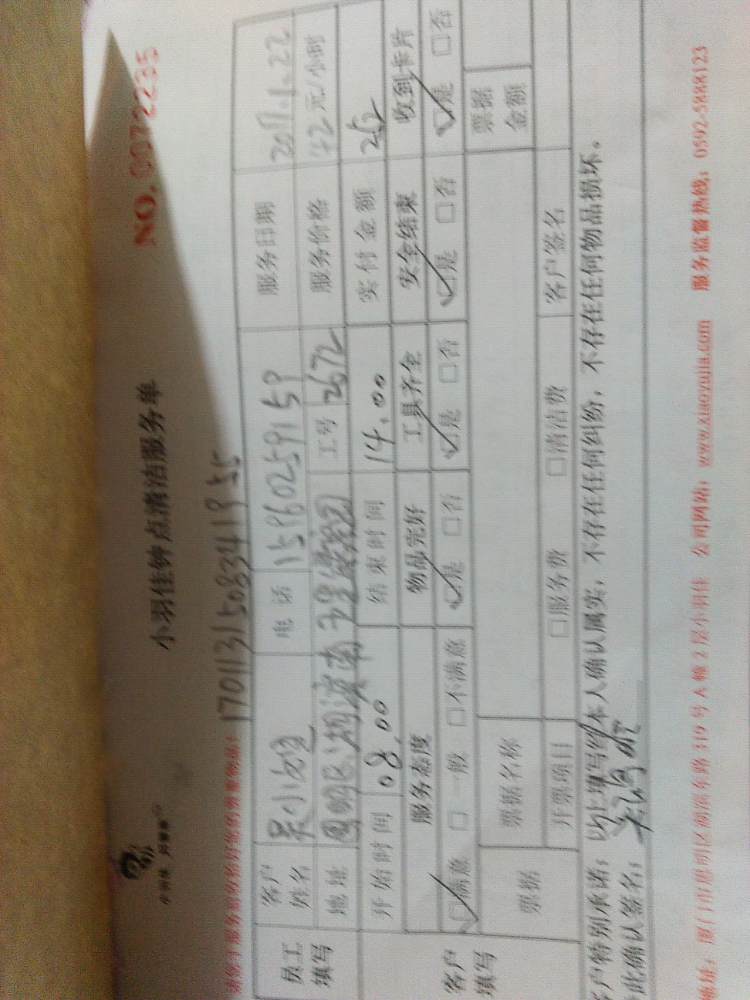 小羽佳钟点清洁服务单
NO. 0072235
请您于服务前收拾好您的贵重物品!
1701131508341955
员工填写
客户姓名 吴小姐 电话 15960259159 服务日期 2017.1.22
地址 思明区湖滨南 工号 2672 服务价格 42元/小时
开始时间 08.00 结束时间 14.00 实付金额 252
客户填写
服务态度 物品完好 工具齐全 安全结束 收到卡片
☑满意 □一般 □不满意 ☑是 □否 ☑是 □否 ☑是 □否 ☑是 □否
票据 票据名称 票据金额
开票项目 □服务费 □清洁费 客户签名
客户特别承诺:以上填写经本人确认属实,不存在任何纠纷,不存在任何物品损坏。
此确认签名:
地址:厦门市思明区湖滨东路319号A幢2层小羽佳 公司网站:www.xiaoyujia.com 服务监督热线:0592-5888123